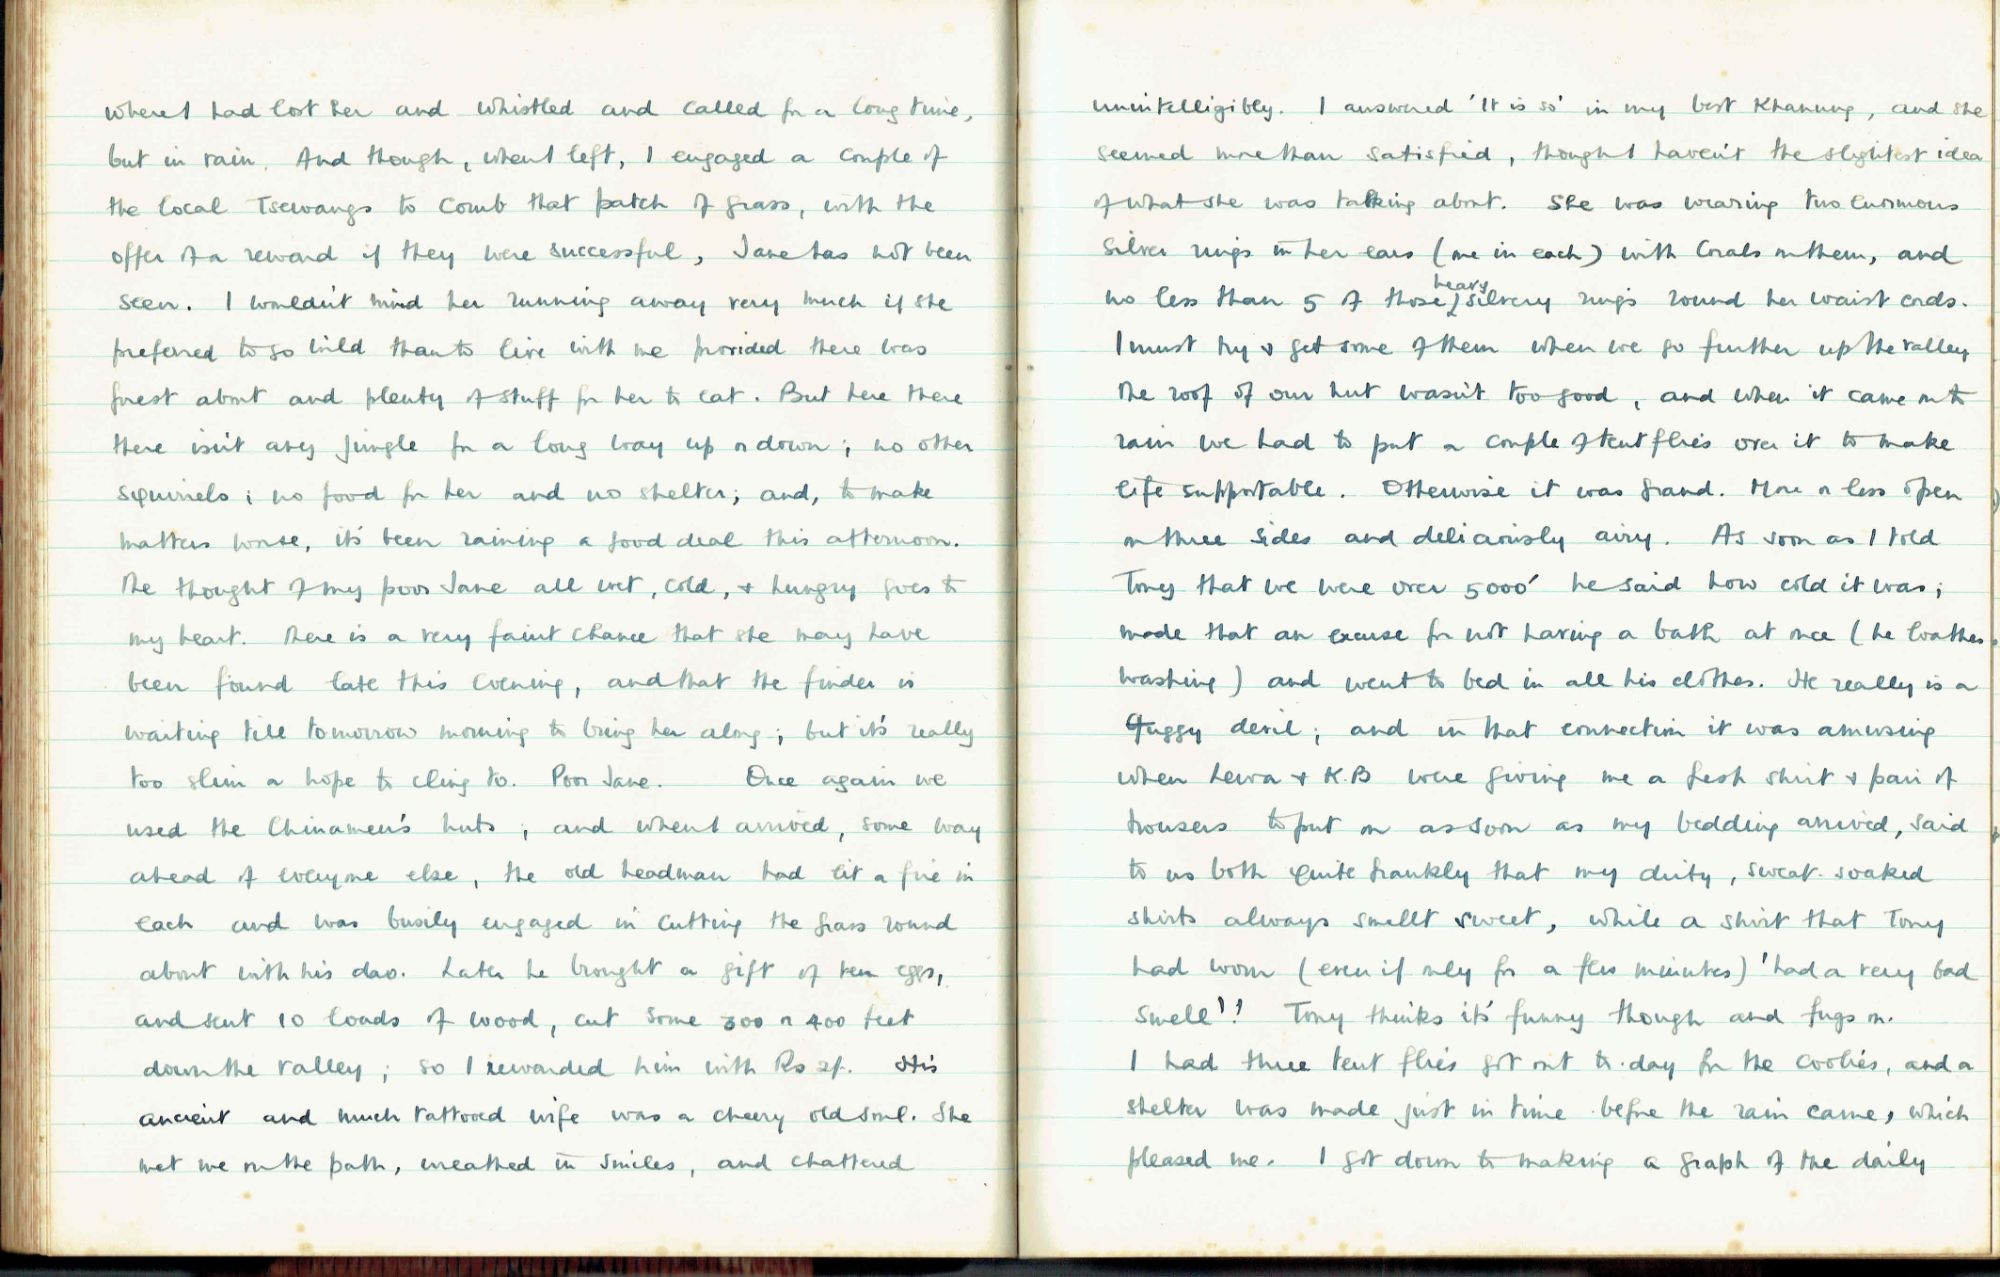 where I had lost her and whistled and called for a long time,
but in vain. And though, when I left, I engaged a couple of
the local Tsewangs to comb that patch of grass, with the
offer of a reward if they were successful, Jane has not been
seen. I wouldn't mind her running away very much if she
preferred to go wild than to live with me provided there was
forest about and plenty of stuff for her to eat. But here there
there isn't any jungle for a long way up or down; no other
squirrels; no food for her and no shelter; and, to make
matters worse, it's been raining a good deal this afternoon.
The thought of my poor Jane all wet, cold, & hungry goes to
my heart. There is a very faint chance that she may have
been found late this evening, and that the finder is
waiting till tomorrow morning to bring her along; but it's really
too slim a hope to cling to. Poor Jane. Once again we
used the Chinamen's huts; and when I arrived, some way
ahead of everyone else, the old headman had lit a fire in
each and was busily engaged in cutting the grass round
about with his dao. Later he brought a gift of ten eggs,
and sent 10 loads of wood, cut some 300 or 400 feet
down the valley; so I rewarded him with Rs 2/-. His
ancient and much tattooed wife was a cheery old soul. She
met me on the path, wreathed in smiles, and chattered
unintelligibly. I answered 'It is so' in my best Khanung, and she
seemed more than satisfied, though I haven't the slightest idea
of what she was talking about. She was wearing two enormous
silver rings in her ears (one in each) with corals on them, and
no less than 5 of those heavy silvery rings round her waist cords.
I must try & get some of them when we go further up the valley
The roof of our hut wasn't too good, and when it came on to
rain we had to put a couple of tent flies over it to make
life supportable. Otherwise it was grand. More or less open
on three sides and deliciously airy. As soon as I told
Tony that we were over 5000' he said how cold it was;
made that an excuse for not having a bath at once (he loathes
washing) and went to bed in all his clothes. He really is a
fuggy devil; and in that connection it was amusing
when Lewa & K.B were giving me a fresh shirt & pair of
trousers to put on as soon as my bedding arrived, said
to us both quite frankly that my dirty, sweat-soaked
shirts always smellt sweet, while a shirt that Tony
had worn (even if only for a few minutes) 'had a very bad
smell'! Tony thinks it's funny though and fugs on.
I had three tent flies got out to-day for the coolies, and a
shelter was made just in time before the rain came, which
pleased me. I got down to making a graph of the daily